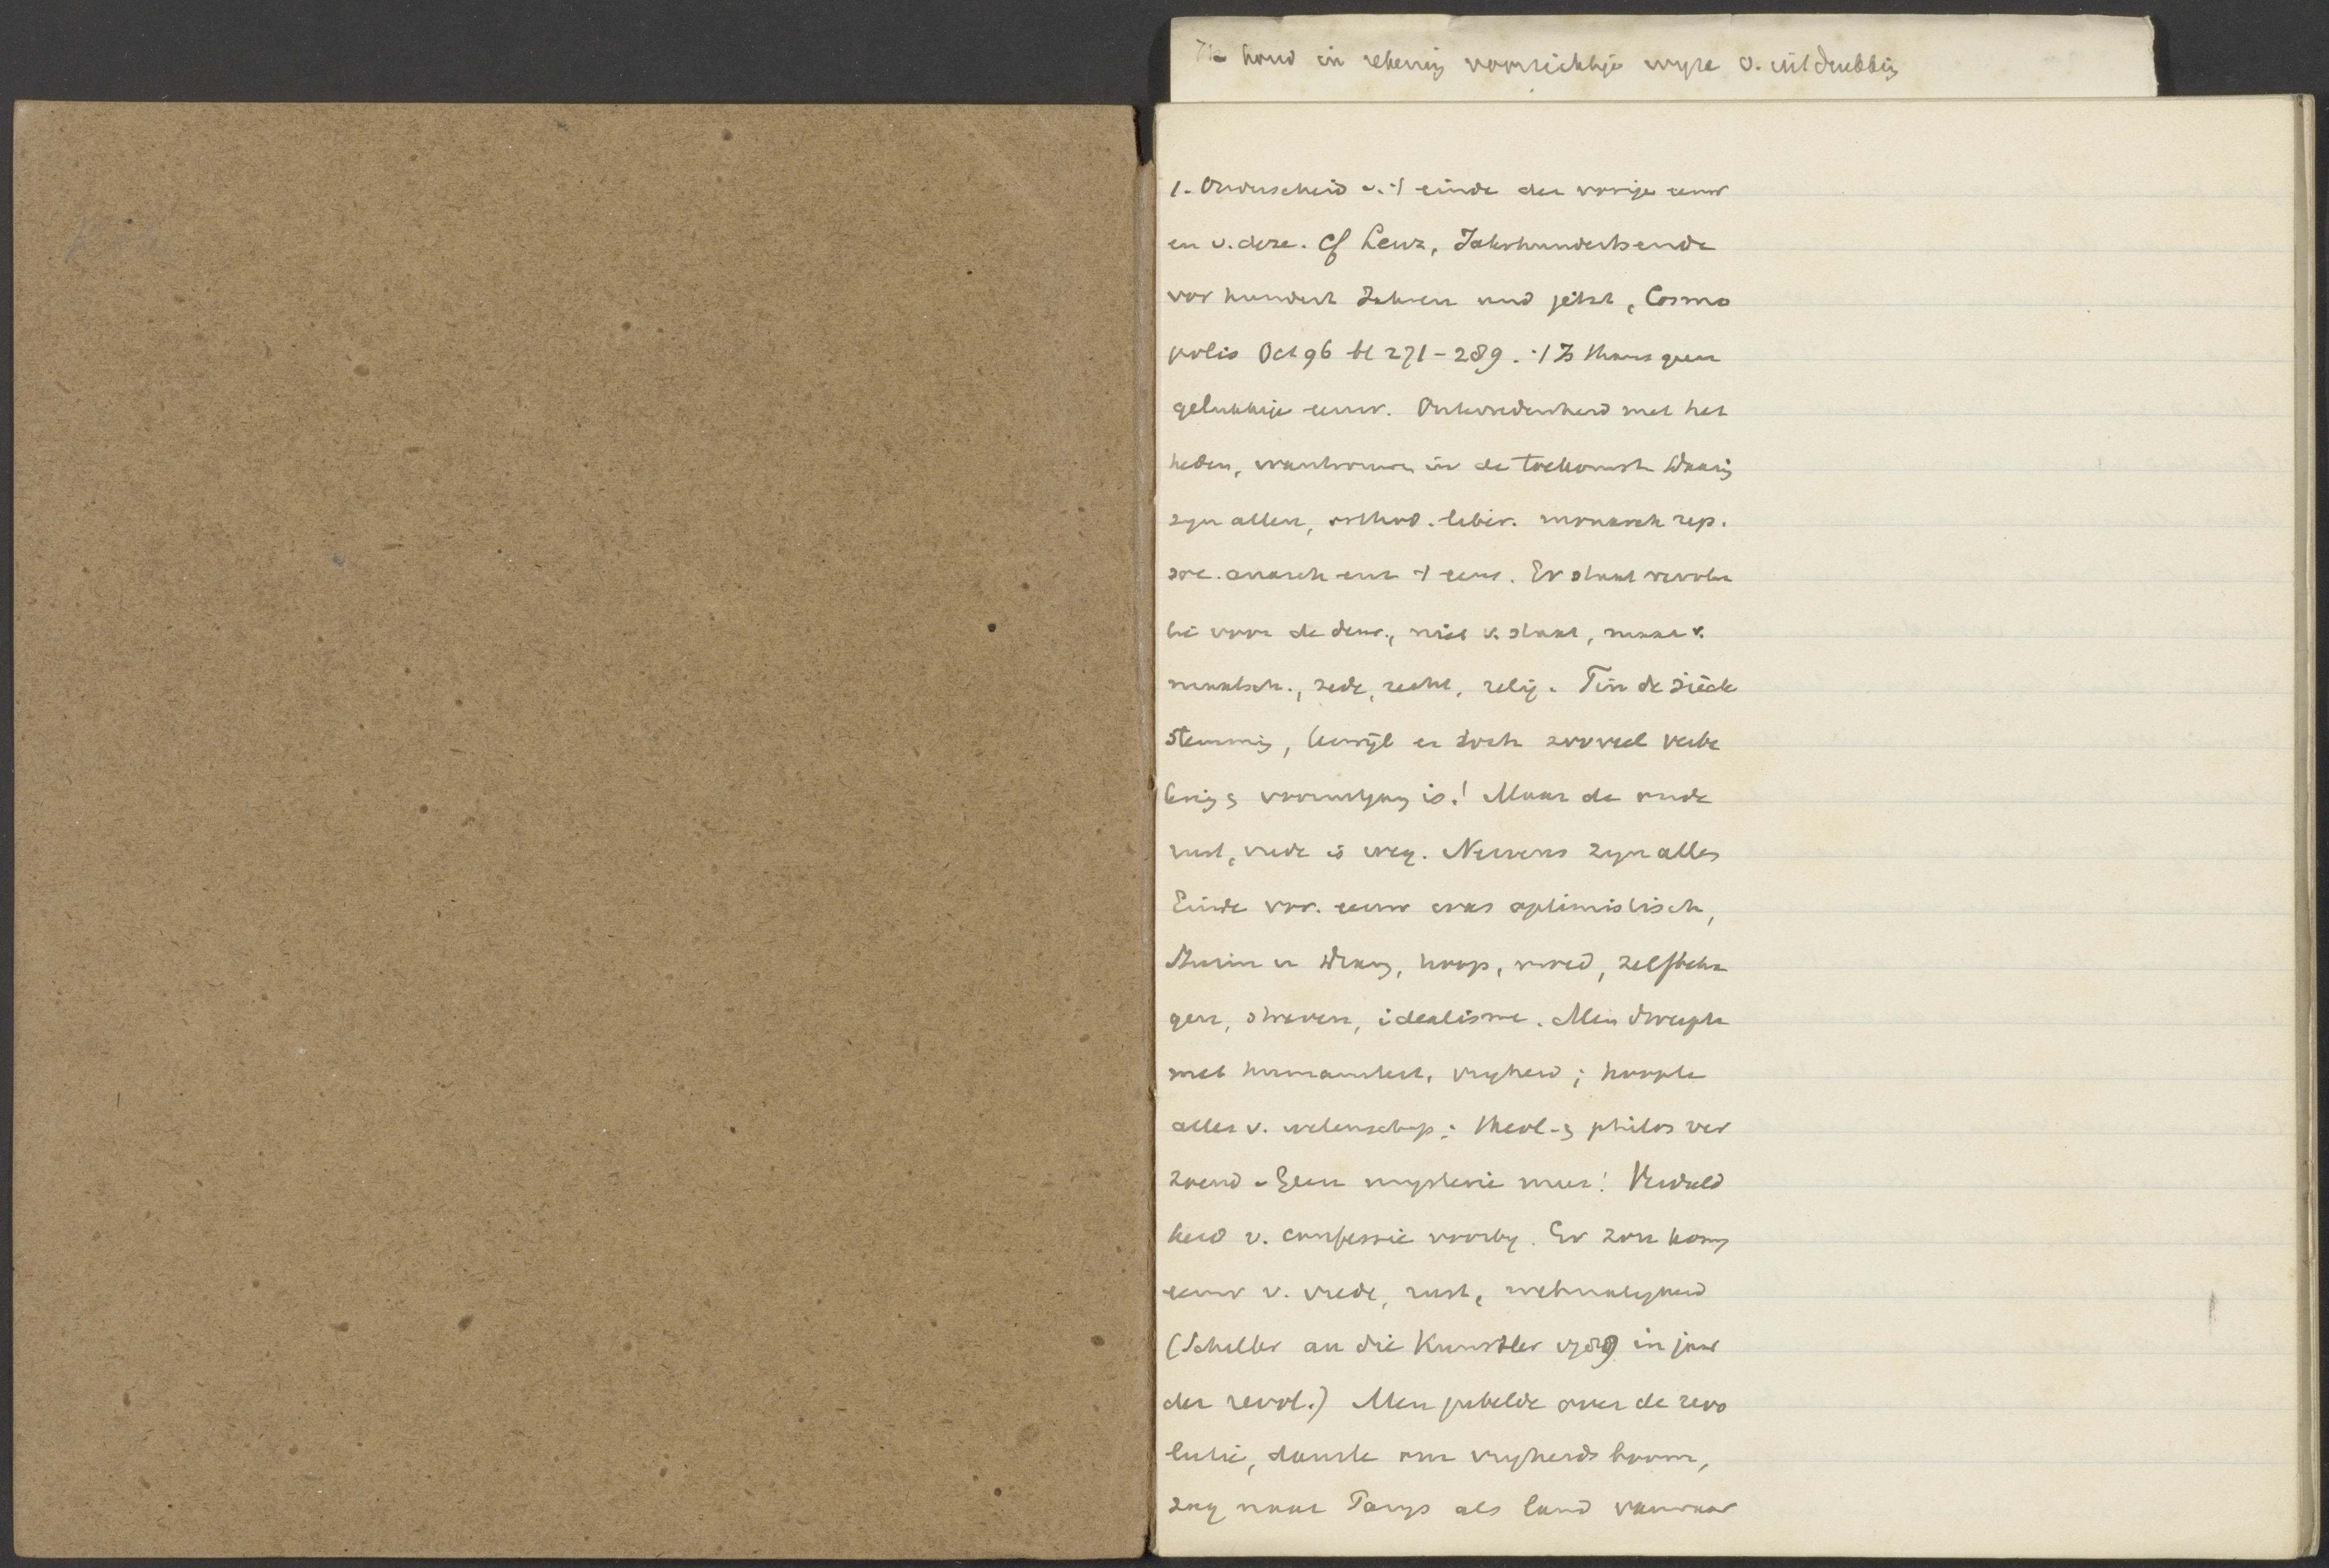 Ik houd in rekening voorzichtige wyze v. uitdrukking
1. Onderscheid v. 't einde der vorige eeuw
en v. deze. Cf Lenz, Jahrhundertsende
vor hundert Jahren und jetzt, Cosmo
polis Oct 96 bl 271-289. 't Is thans geen
gelukkige eeuw. Ontevredenheid met het
heden, wantrouwen in de toekomst. Daarin
zyn allen, orthod. liber. monarch rep.
soc. anarch. 't eens. Er staat revolu
tie voor de deur, niet v. staat, maar v.
maatsch., zede, recht, relig. Fin de siècle
stemming, terwijl er toch zooveel verbe
tering & vooruitgang is! Maar de oude
rust, vrede is weg. Nerveus zyn allen
Einde vor. eeuw was optimistisch,
Sturm u Drang, hoop, moed, zelfbeha
gen, streven, idealisme. Men dweepte
met humaniteit, vryheid; hoopte
alles v. wetenschap; theol. & philos ver
zoend. Geen mysterie meer! Verdeeld
heid v. confessie voorby. Er zou komen
eeuw v. vrede, rust,
(Schiller an die Künstler 1789 in jaar
der revol.) Men jubelde over de revo
lutie, danste om vryheidsboom,
zag naar Parys als land vanwaar